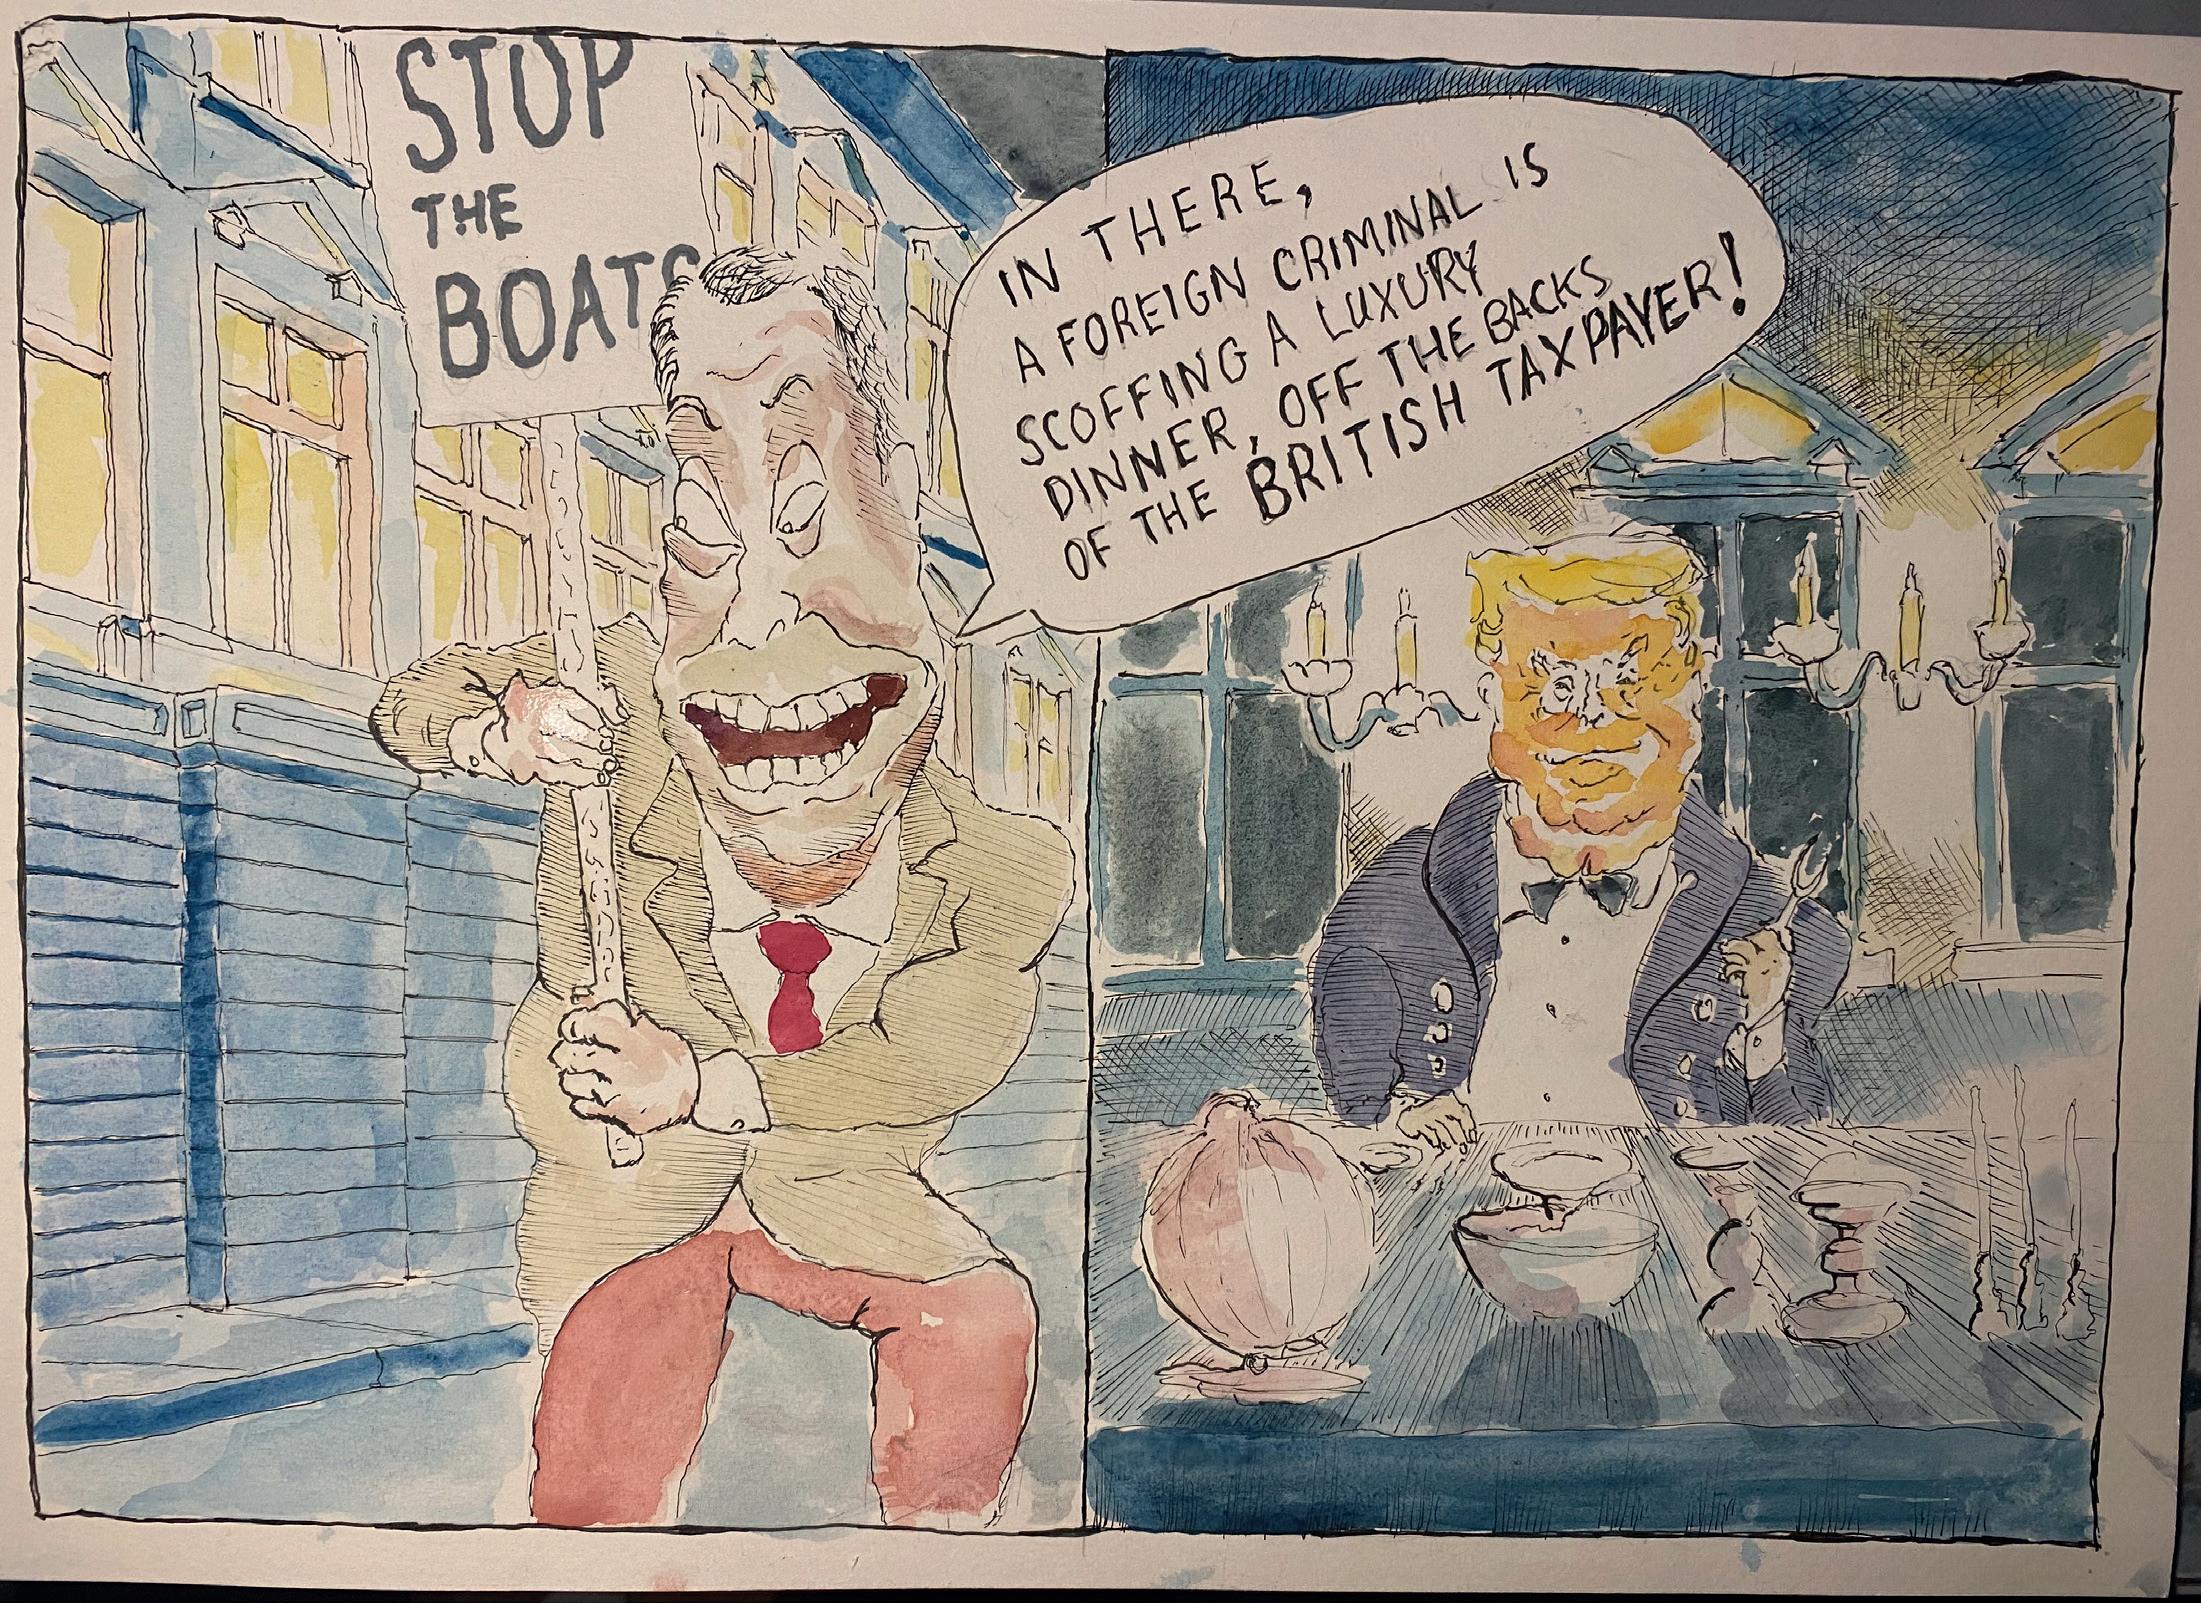 STOP
THE
BOATS
IN THERE,
A FOREIGN CRIMINAL IS
SCOFFING A LUXURY
DINNER, OFF THE BACKS
OF THE BRITISH TAXPAYER!